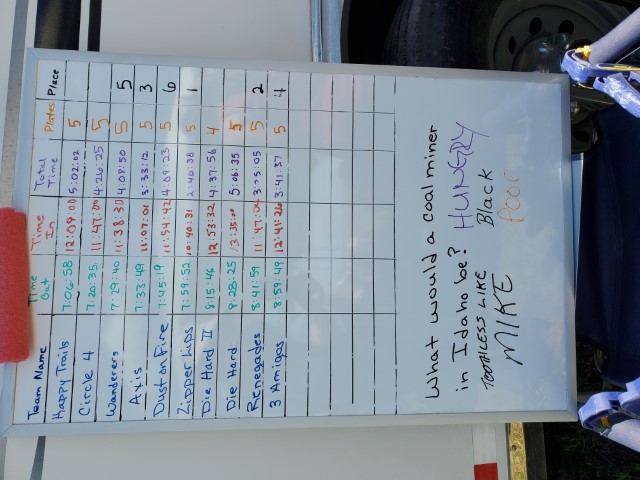 Team Name Time Out Time In Total Time Plates Place
Happy Trails 7:06:58 12:09:00 5:02:02 5
Circle 4 7:20:35 11:47:00 4:26:25 5
Wanderers 7:29:40 11:38:30 4:08:50 5 5
Axis 7:33:49 11:07:01 3:33:12 5 3
Dust on Fire 7:45:19 11:54:42 4:09:23 5 6
Zipper Lips 7:59:52 10:40:31 2:40:38 5 1
Die Hard II 8:15:46 12:53:32 4:37:56 4
Die Hard 8:28:25 13:35:00 5:06:35 5
Renegades 8:41:59 11:47:04 3:05:05 5 2
3 Amigos 8:59:49 12:41:26 3:41:37 5 4
What would a coal miner
in Idaho be? HUNGRY
TOOTHLESS LIKE Black
MIKE Poor